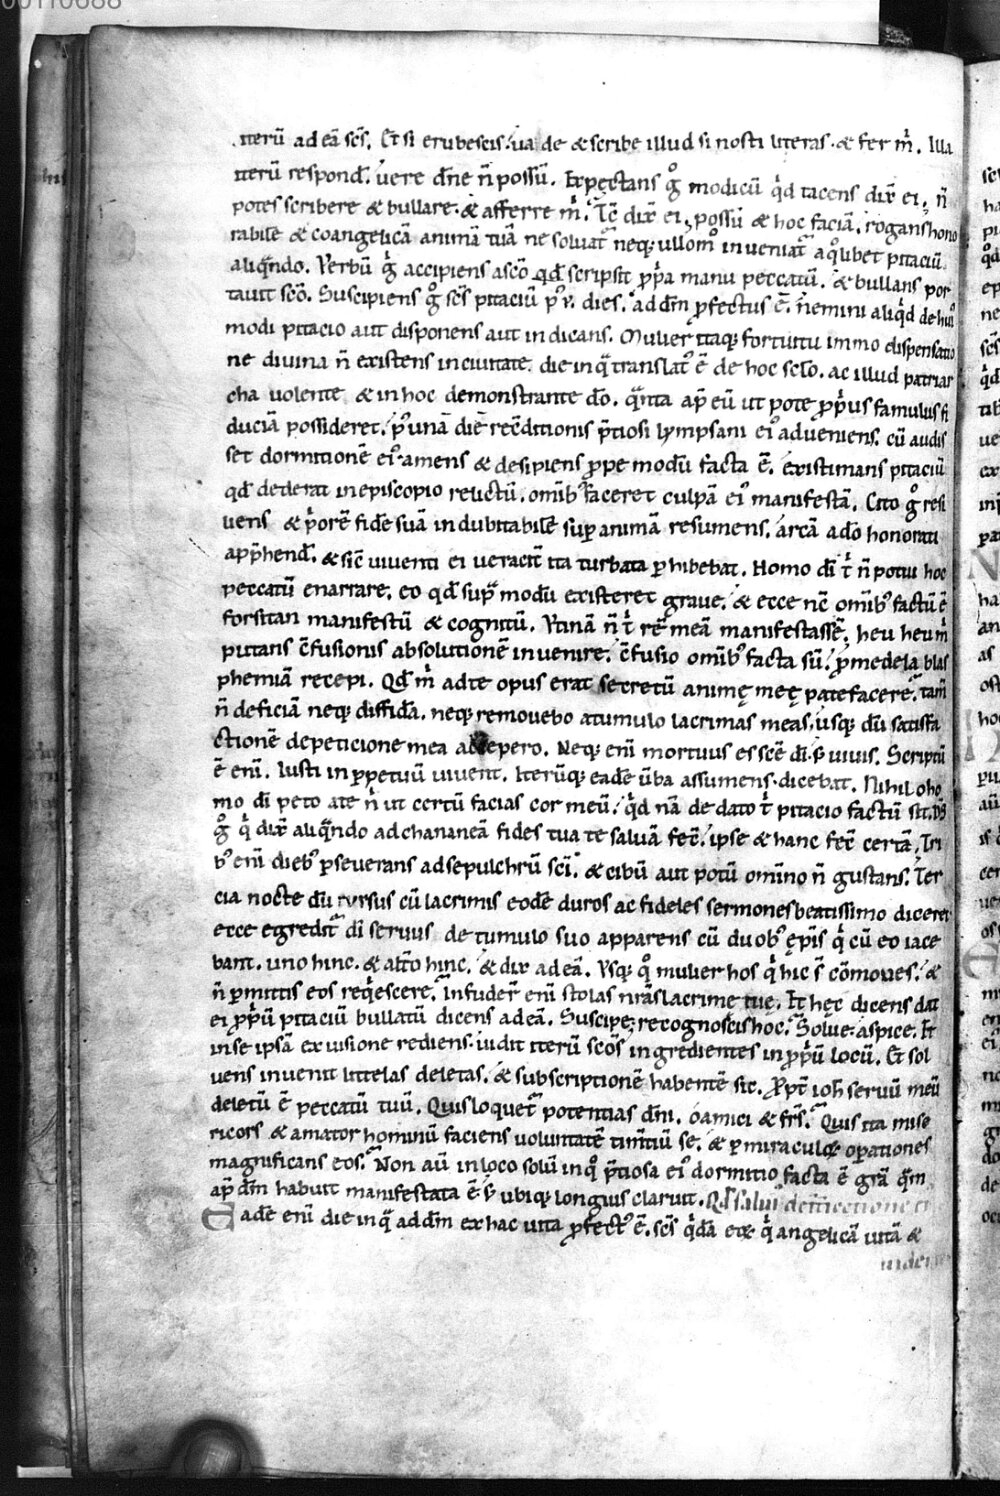 00110688
iterū ad eā sc̄s. Et si erubescis. uade & scribe illud si nosti literas. & fer m̄. Illa
iterū respond̄. vere dn̄e n̄ possū. Expectans g̊ modicū q̇d tacens dix̄ ei, n̄
potes scribere & bullare. & afferre m̄. Tc̄ dix̄ ei, possū & hoc faciā. rogans hono
rabilē & coangelicā animā tuā ne soluat̄ neq; ullom̊ inueniat̄ a q̊libet pitaciū
aliq̄ndo. Verbū g̊ accipiens a sc̄o. qd̄ scripsit p̱p̄a manu peccatū. & bullans por
tauit sc̄o. Suscipiens g̊ sc̄s pitaciū p̓ .v. dies. ad dn̄m p̱fectus ē. nemini aliq̇d de hui᾽
modi pitacio aut disponens aut indicans. Mulier itaq; fortuitu immo dispensatio
ne diuina n̄ existens in ciuitate. die in q̄ translat᾽ ē de hoc sc̄lo. ac illud patriar
cha uolente & in hoc demonstrante dō. q̄nta ap̄ eū ut pote p̱p̄us famulus fi
duciā possideret. p̓ unā diē recōditionis p̄tiosi lympsani ei᾽ adueniens. cū audis
set dormitionē ei᾽. amens & desipiens p̱pe modū facta ē. existimans pitaciū
qd̄ dederat in episcopio reuictū. omib᾽ faceret culpā ei᾽ manifestā. Cito g̊ resi
uens & p̓orē fidē suā indubitabilē sup̱ animā resumens. arcā a dō honorati
app̄hend̄. & sic̄ uiuenti ei ueracit̄ ita turbata p̱hibebat. Homo dī t̓ n̄ potui hoc
peccatū enarrare. eo qd̄ sup̄ modū existeret graue. & ecce nc̄ omib᾽ factū ē
forsitan manifestū & cognitū. Vtinā n̄ t̓ rē meā manifestassē. heu heu m̓
putans c̄fusionis absolutionē inuenire. c̄fusio omib᾽ facta sū. p̱ medela blas
phemiā recepi. Qd̄ m̓ ad te opus erat secretū animę meę patefacere. tam̄
n̄ deficiā neq; diffidā. neq; remouebo a tumulo lacrimas meas. usq; dū satisfa
ctionē de peticione mea accepero. Neq; enī mortuus es sc̄e dī. s; uiuis. Scriptū
ē enī. Iusti in p̱petuū uiuent. Iterūq; eadē ūba assumens. dicebat. Nihil o ho
mo dī peto a te n̓ ut certū facias cor meū. q̇d nā de dato t̓ pitacio factū sit. Ds̄
g̊ q̓ dix̄ aliq̄ndo ad chananeā fides tua te saluā fec̄. ipse & hanc fec̄ certā. Tri
b᾽ enī dieb᾽ p̱seuerans ad sepulchrū sc̄i. & cibū aut potū omīno n̄ gustans. Ter
cia nocte dū rursus cū lacrimis eodē duros ac fideles sermones beatissimo diceret
ecce egredit̄ dī seruus de tumulo suo apparens cū duob᾽ ep̄is q̓ cū eo iace
bant. uno hinc. & alt̄o hinc. & dix̄ ad eā. Vsq; q̊ mulier hos q̓ hic s̄ cōmoues. &
n̄ p̱mittis eos req̓escere. Infuder̄ enī stolas nr̄as lacrimę tuę. Et hęc dicens dat
ei p̱p̓ū pitaciū bullatū dicens ad eā. Suscipe. recognoscis hoc. Solue. aspice. Et
in se ipsā ex uisione rediens. uidit iterū sc̄os ingredientes in p̱p̓ū locū. Et sol
uens inuenit littelas deletas. & subscriptionē habentē sic. P̱pt̄ ioh̄ seruū meū
deletū ē peccatū tuū. Quis loquet̄ potentias dn̄i. o amici & fr̄s. Quis ita mise
ricors & amator hominū faciens uoluntatē timētiū se. & p̱ miraculoꝝ op̱ationes
magnificans eos. Non aū in loco solū in q̊ p̄tiosa ei᾽ dormitio facta ē grā q̄m
ap̄ dn̄m habuit manifestata ē s; ubiq; longius claruit.
Eadē enī die in q̄ ad dn̄m ex hac uita p̱fect᾽ ē. sc̄s q̓dā erat q̓ angelicā uitā &